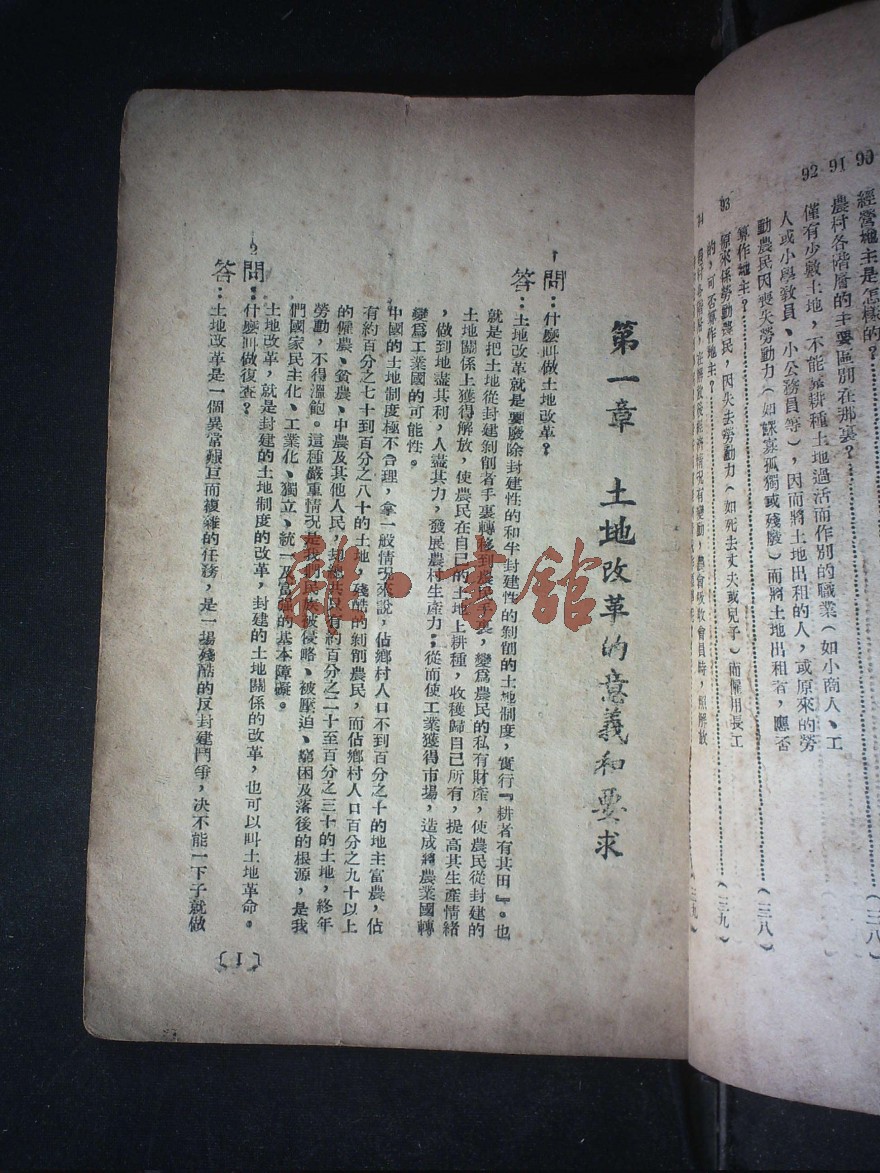 經營地主是怎樣的？
90
農村各階層的主要區別在那裏？
91
（三八）
92
僅有少數土地，不能靠耕種土地過活而作別的職業（如小商人、工
人或小學教員、小公務員等），因而將土地出租的人，或原來的勞
動農民因喪失勞動力（如鰥寡孤獨或殘廢）而將土地出租者，應否
算作地主？
（三八）
93
原來係勞動農民，因失去勞動力（如死去丈夫或兒子）而僱用長工
的，可否算作地主？
（三九）
第一章　土地改革的意義和要求
1問：什麼叫做土地改革？
答：土地改革就是要廢除封建性的和半封建性的剝削的土地制度，實行『耕者有其田』。也
就是把土地從封建剝削者手裏轉移到農民手裏，變爲農民的私有財產，使農民從封建的
土地關係上獲得解放，使農民在自己的土地上耕種，收獲歸自己所有，提高其生產情緒
，做到地盡其利，人盡其力，發展農村生產力；從而使工業獲得市場，造成將農業國轉
變爲工業國的可能性。
中國的土地制度極不合理，拿一般情況來說，佔鄉村人口不到百分之十的地主富農，佔
有約百分之七十到百分之八十的土地，殘酷的剝削農民，而佔鄉村人口百分之九十以上
的僱農、貧農、中農及其他人民，却總共只有約百分之二十至百分之三十的土地，終年
勞動，不得溫飽。這種嚴重情況是我們民族被侵略、被壓迫、窮困及落後的根源，是我
們國家民主化、工業化、獨立、統一及富强的基本障礙。
土地改革，就是封建的土地制度的改革，封建的土地關係的改革，也可以叫土地革命。
2問：什麼叫做復查？
答：土地改革是一個異常艱巨而複雜的任務，是一場殘酷的反封建鬥爭，決不能一下子就做
〔1〕
雜·書館